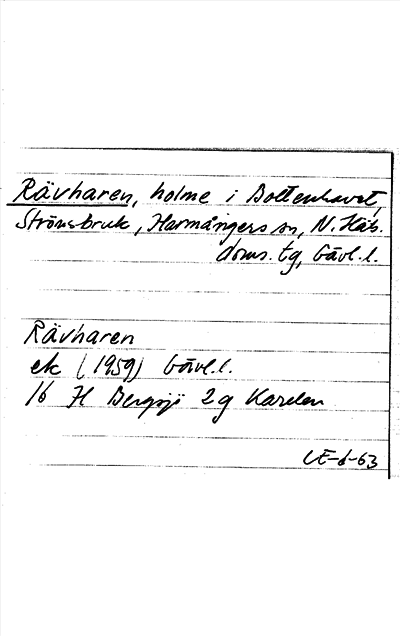 Rävharen, holme i Bottenhavet,
Strömsbruk, Harmångers sn, N. Häs.
doms. tg, Gävl. l.
Rävharen
ek (1959) Gävl. l.
16 H Bergsjö 2g Kartan
CE-6-63